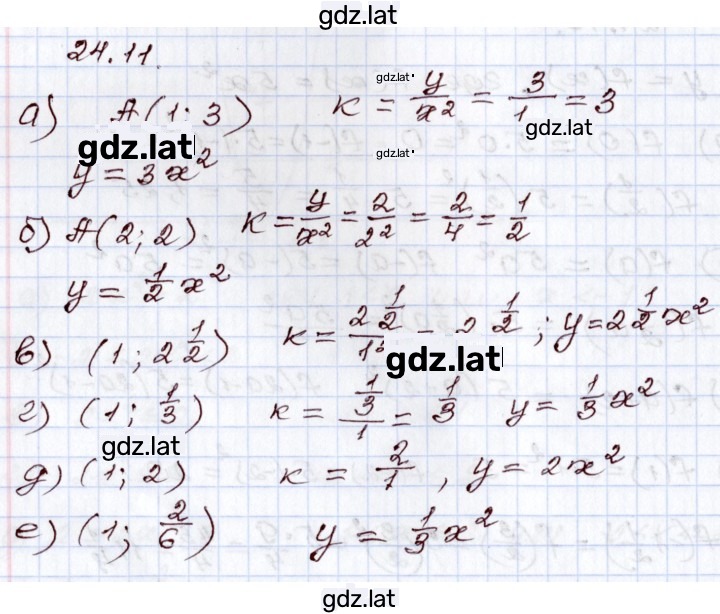 gdz.lat
24.11.
gdz.lat
а) А(1; 3) к = y/x² = 3/1 = 3
gdz.lat
gdz.lat
gdz.lat
y = 3x²
б) А(2; 2) к = y/x² = 2/2² = 2/4 = 1/2
y = 1/2 x²
в) (1; 2 1/2) к = 2 1/2 / 1² = 2 1/2; y = 2 1/2 x²
gdz.lat
г) (1; 1/3) к = 1/3 / 1 = 1/3 y = 1/3 x²
gdz.lat
д) (1; 2) к = 2/1, y = 2x²
е) (1; 2/6) y = 1/3 x²
gdz.lat